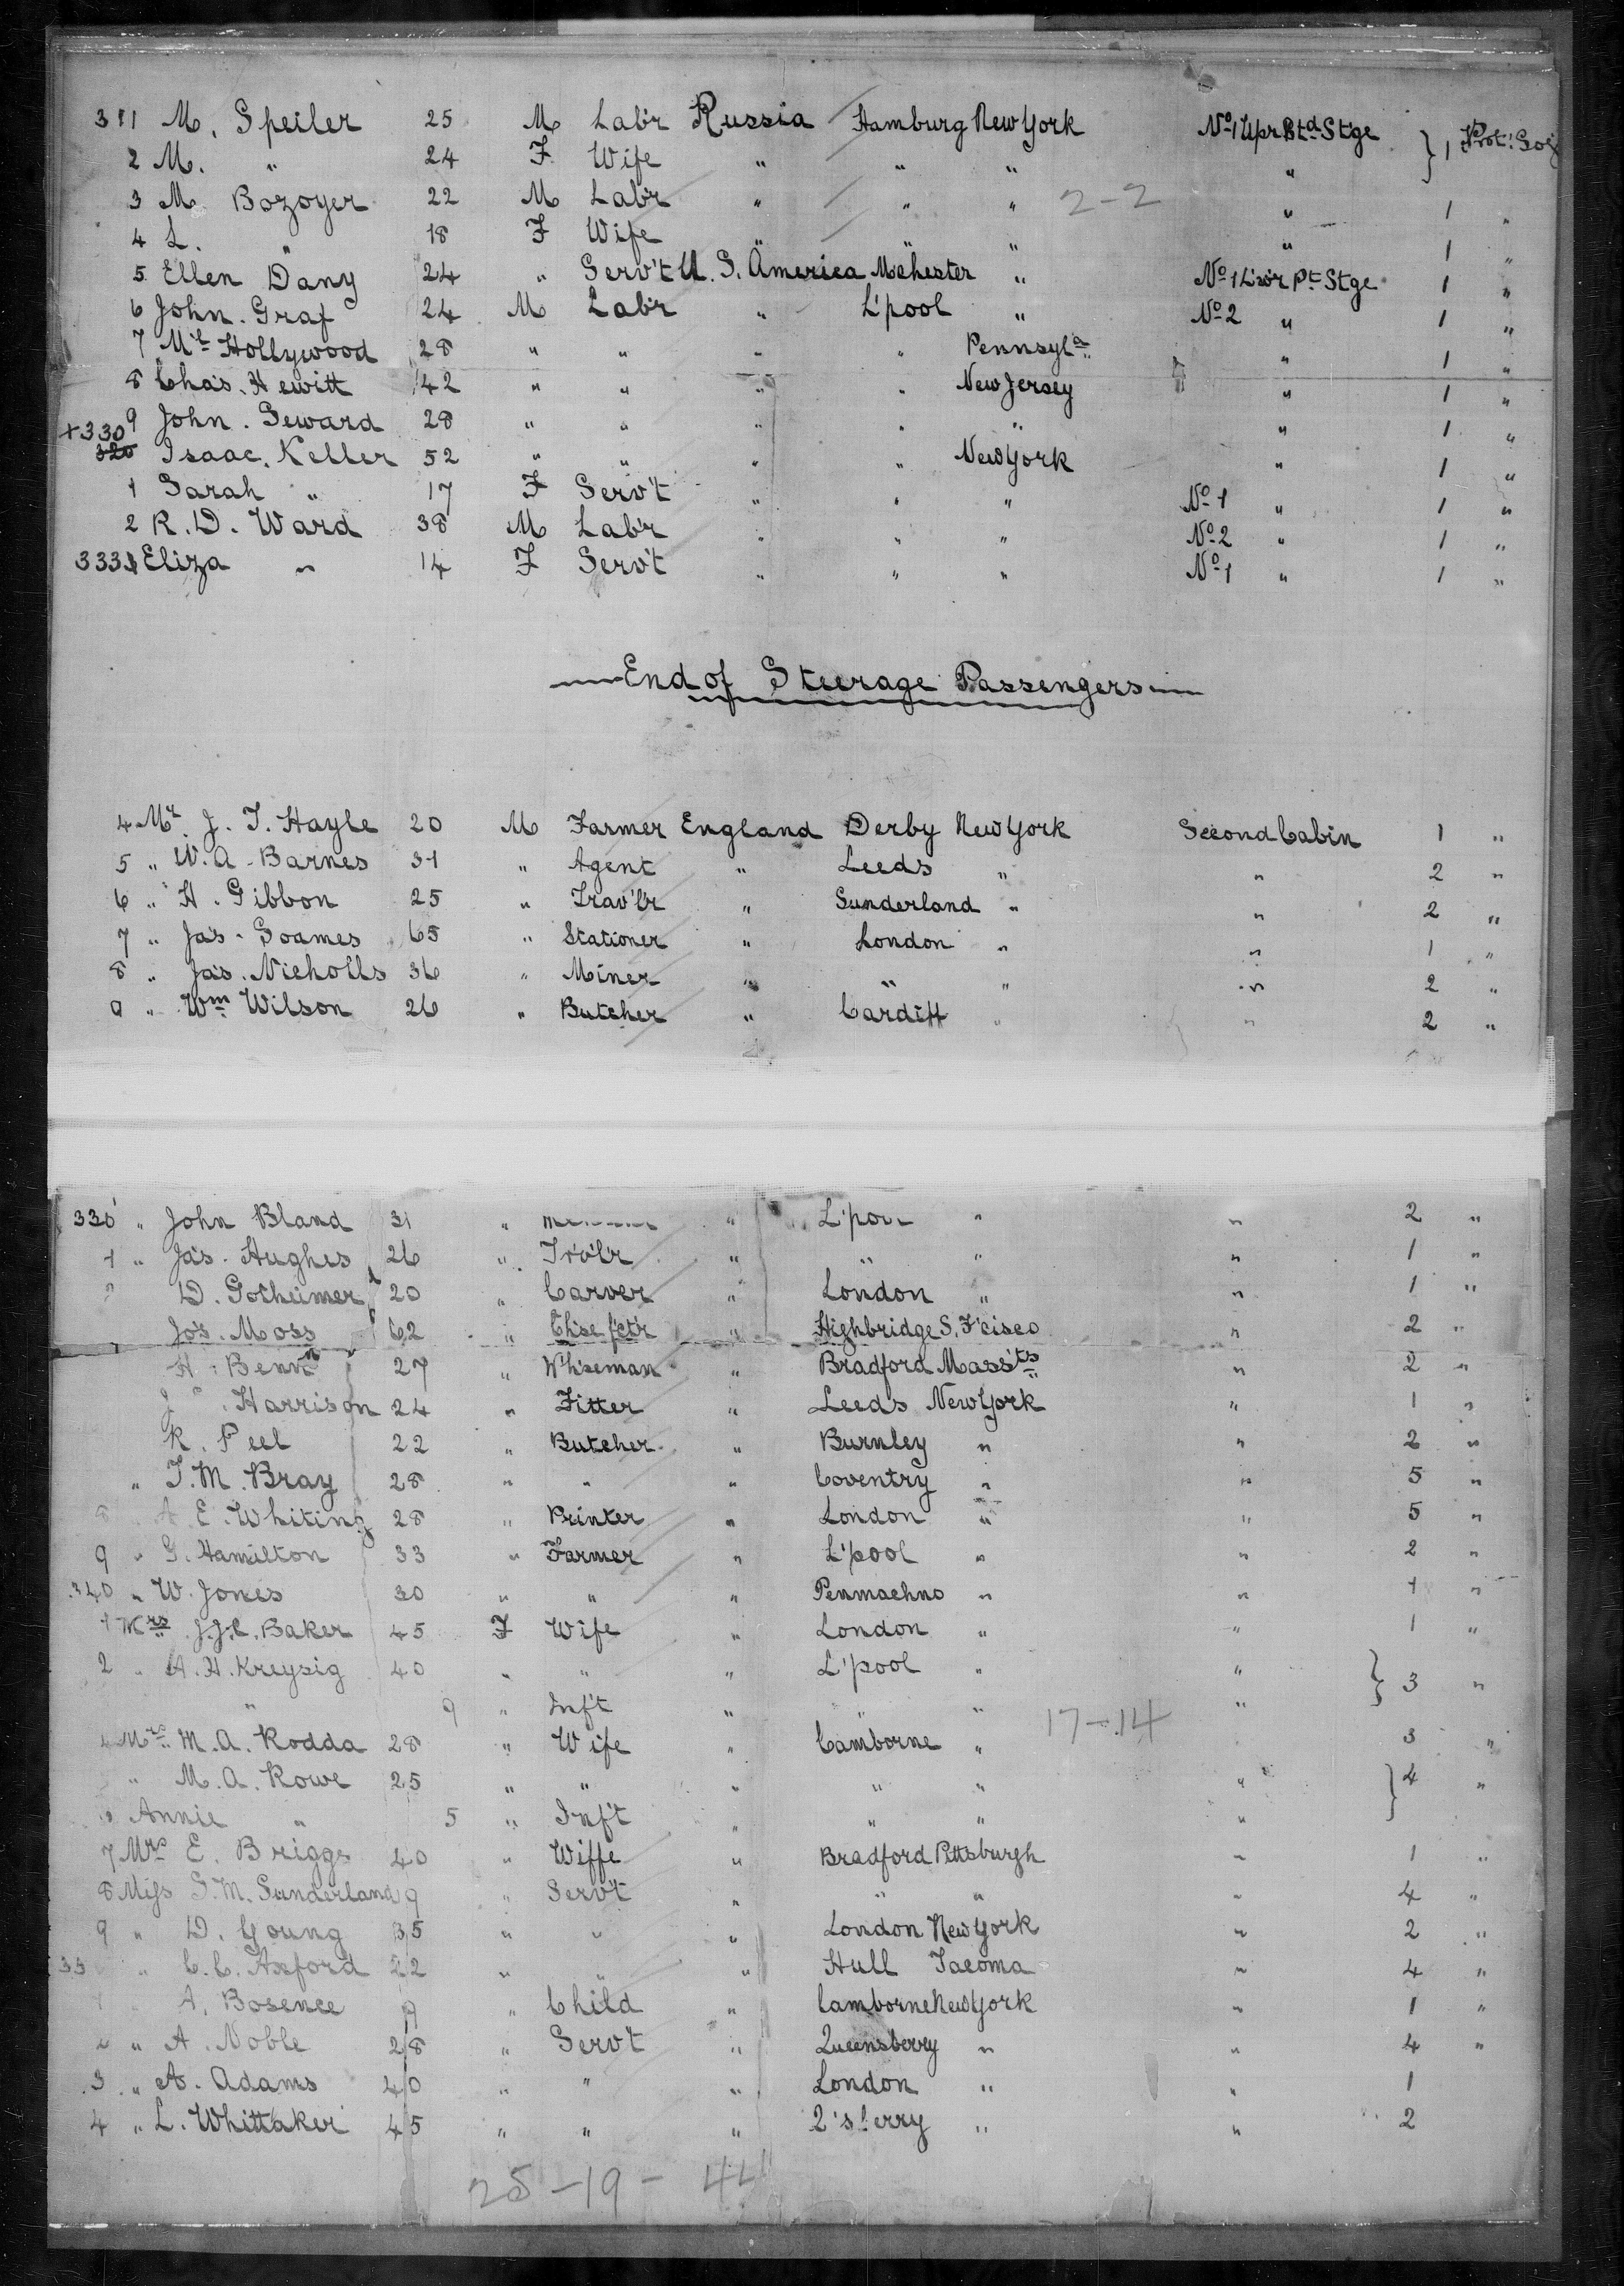 311 M. Speiler 25 M Lab'r Russia Hamburg New York No 1 Upr Btd Stge } 1 Prot:
2 M. " 24 F Wife " " " "
3 M. Bozoyer 22 M Lab'r " " " 2-2 " 1 "
4 L. " 18 F Wife " " " " 1 "
5 Ellen Dany 24 " Serv't U. S. America Mchester " No 1 Pt Stge 1 "
6 John. Graf 24 M Lab'r " L'pool " No 2 " 1 "
7 Hollywood 28 " " " " Pennsyla " 1 "
8 Chas. Hewitt 42 " " " " New Jersey " 1 "
9 John. Seward 28 " " " " " " 1 "
+330
320 Isaac. Keller 52 " " " " New York " 1 "
1 Sarah " 17 F Serv't " " " No 1 " 1 "
2 R. D. Ward 38 M Lab'r " " " No 2 " 1 "
3333 Eliza " 14 F Serv't " " " No 1 " 1 "
End of Steerage Passengers
4 Mr. J. T. Hayle 20 M Farmer England Derby New York Second Cabin 1 "
5 " W. A. Barnes 31 " Agent " Leeds " " 2 "
6 " H. Gibbon 25 " Trav'lr " Sunderland " " 2 "
7 " Jas. Soames 65 " Stationer " London " " 1 "
8 " Jas. Nicholls 36 " Miner " " " " 2 "
9 " Wm Wilson 26 " Butcher " Cardiff " " 2 "
330 " John Bland 31 " " L'pool " " 2 "
1 " Jas. Hughes 26 " Tr'v'l'r " " " " 1 "
2 D. Gotheimer 20 " Carver " London " " 1 "
Jos. Moss 62 " Ch'se fct'r " Highbridge S. F'cisco " 2 "
H. 27 " W'hseman " Bradford Mass'ts " 2 "
J. Harrison 24 " Fitter " Leeds New York " 1 "
R. Peel 22 " Butcher " Burnley " " 2 "
" T. M. Bray 28 " " " Coventry " " 5 "
8 " A. E. Whiting 28 " Printer " London " " 5 "
9 " G. Hamilton 33 " Farmer " L'pool " " 2 "
340 " W. Jones 30 " " " Penmachno " " 1 "
1 Mrs J. J. C. Baker 45 F Wife " London " " 1 "
2 " A. H. Kreysig 40 " " " L'pool " " } 3 "
" 9 " Inf't " " " "
4 Mrs M. A. Rodda 28 " Wife " Camborne " 17-14 3 "
" M. A. Rowe 25 " " " " " " } 4 "
6 Annie " 5 " Inf't " " " "
7 Mrs E. Briggs 40 " Wiffe " Bradford Pittsburgh " 1 "
8 Miss S. M. Sunderland 9 " Serv't " " " " 4 "
9 " D. Young 35 " " " London New York " 2 "
35 " C. C. Axford 22 " " " Hull Tacoma " 4 "
1 " A. Bosence 9 " Child " Camborne New York " 1 "
2 " A. Noble 28 " Serv't " Queensberry " " 4 "
3 " A. Adams 40 " " " London " " 1
4 " L. Whittaker 45 " " " Q'sberry " " 2
25-19-44